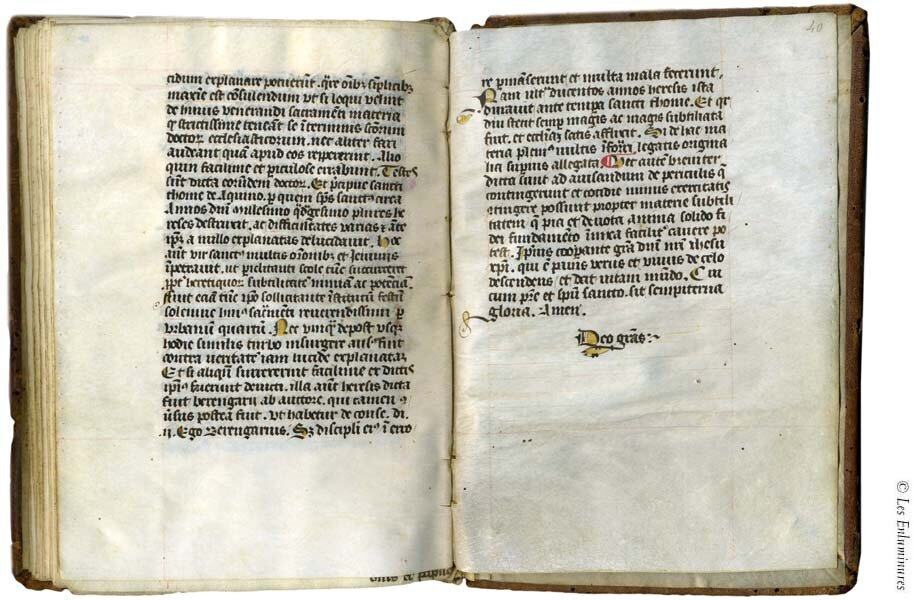 cidum explanare potuerūt . q̄re oībꝫ sīplicibꝫ
maxīe est cōsulendum vt si loqui velint
de huius venerandi sacramēti materia
ꝙ strictissime teneāt se ī terminis sc̄orum
doctoꝝ ecclesiasticorum . nec aliter fari
audeant quā apud eos reppererīt . Alio
quin facilime et ꝑiculose errabunt . Testes
sūt dicta eorūdem doctoꝝ . Et p̄cipue sancti
thome de Aquino . ꝑ quem sp̄s sanctꝰ circa
Annos dn̄i millesimo plures he
reses destruxit . ac difficultates varias ⁊ āte
ip̄m a nullo explanatas delucidauit . Hoc
aūt vir sanctꝰ multis or̄onibꝫ et Ieiuniis
īpetrauit . ut ꝑclitanti scole tūc succurreret
hereticoꝝ subtilitate nimia ac potēcia
sollicitante īstitutū festū
solenne huiꝰ sac̄mēti reuerendissimi ꝑ
vrbanum quartū . Nec vnqꝫ depost vsqꝫ
hodie similis turbo insurgere ausꝰ fuit
contra ueritatē iam lucide explanatam
Et si aliqui surrexerint facilime ex dictis
ip̄iꝰ fuerunt deuicti . illa aūt heresis dicta
fuit berengarii ab auctore . qui tamen
ūsus postea fuit . vt habetur de conse . di .
ii . Ego Berengarius . Sꝫ discipli eiꝰ ī erro
40
re ꝑmāserunt et multa mala fecerunt .
Nam ult̄ ducentos annos heresis ista
durauit ante tempa sancti thome . Et qͣ
diu stetit semꝑ magis ac magis subtiliata
fuit . et eccl̄iam satis afflixit . Si de hac ma
teria pleniꝰ multis īfor̄i legatis origina
lia supius allegata Hec autē breuiter
dicta sunt ad auisandum de periculis q̄
contingerunt et cotidie minus exercitatis
ɔtingere possunt propter materie subtili
tatem qͣ pia et deuota anima solido fi
dei fundamēto īnixa facilit̄ cauere po
test . Ip̄ius cooꝑante gr̄a dn̄i nr̄i Ihesu
xp̄i . qui ē panis verus et viuus de celo
descendens / et dat uitam mūdo . Cui
cum pr̄e et sp̄u sancto . sit sempiterna
gloria . Amen .
Deo gr̄as :
© Les Enluminures